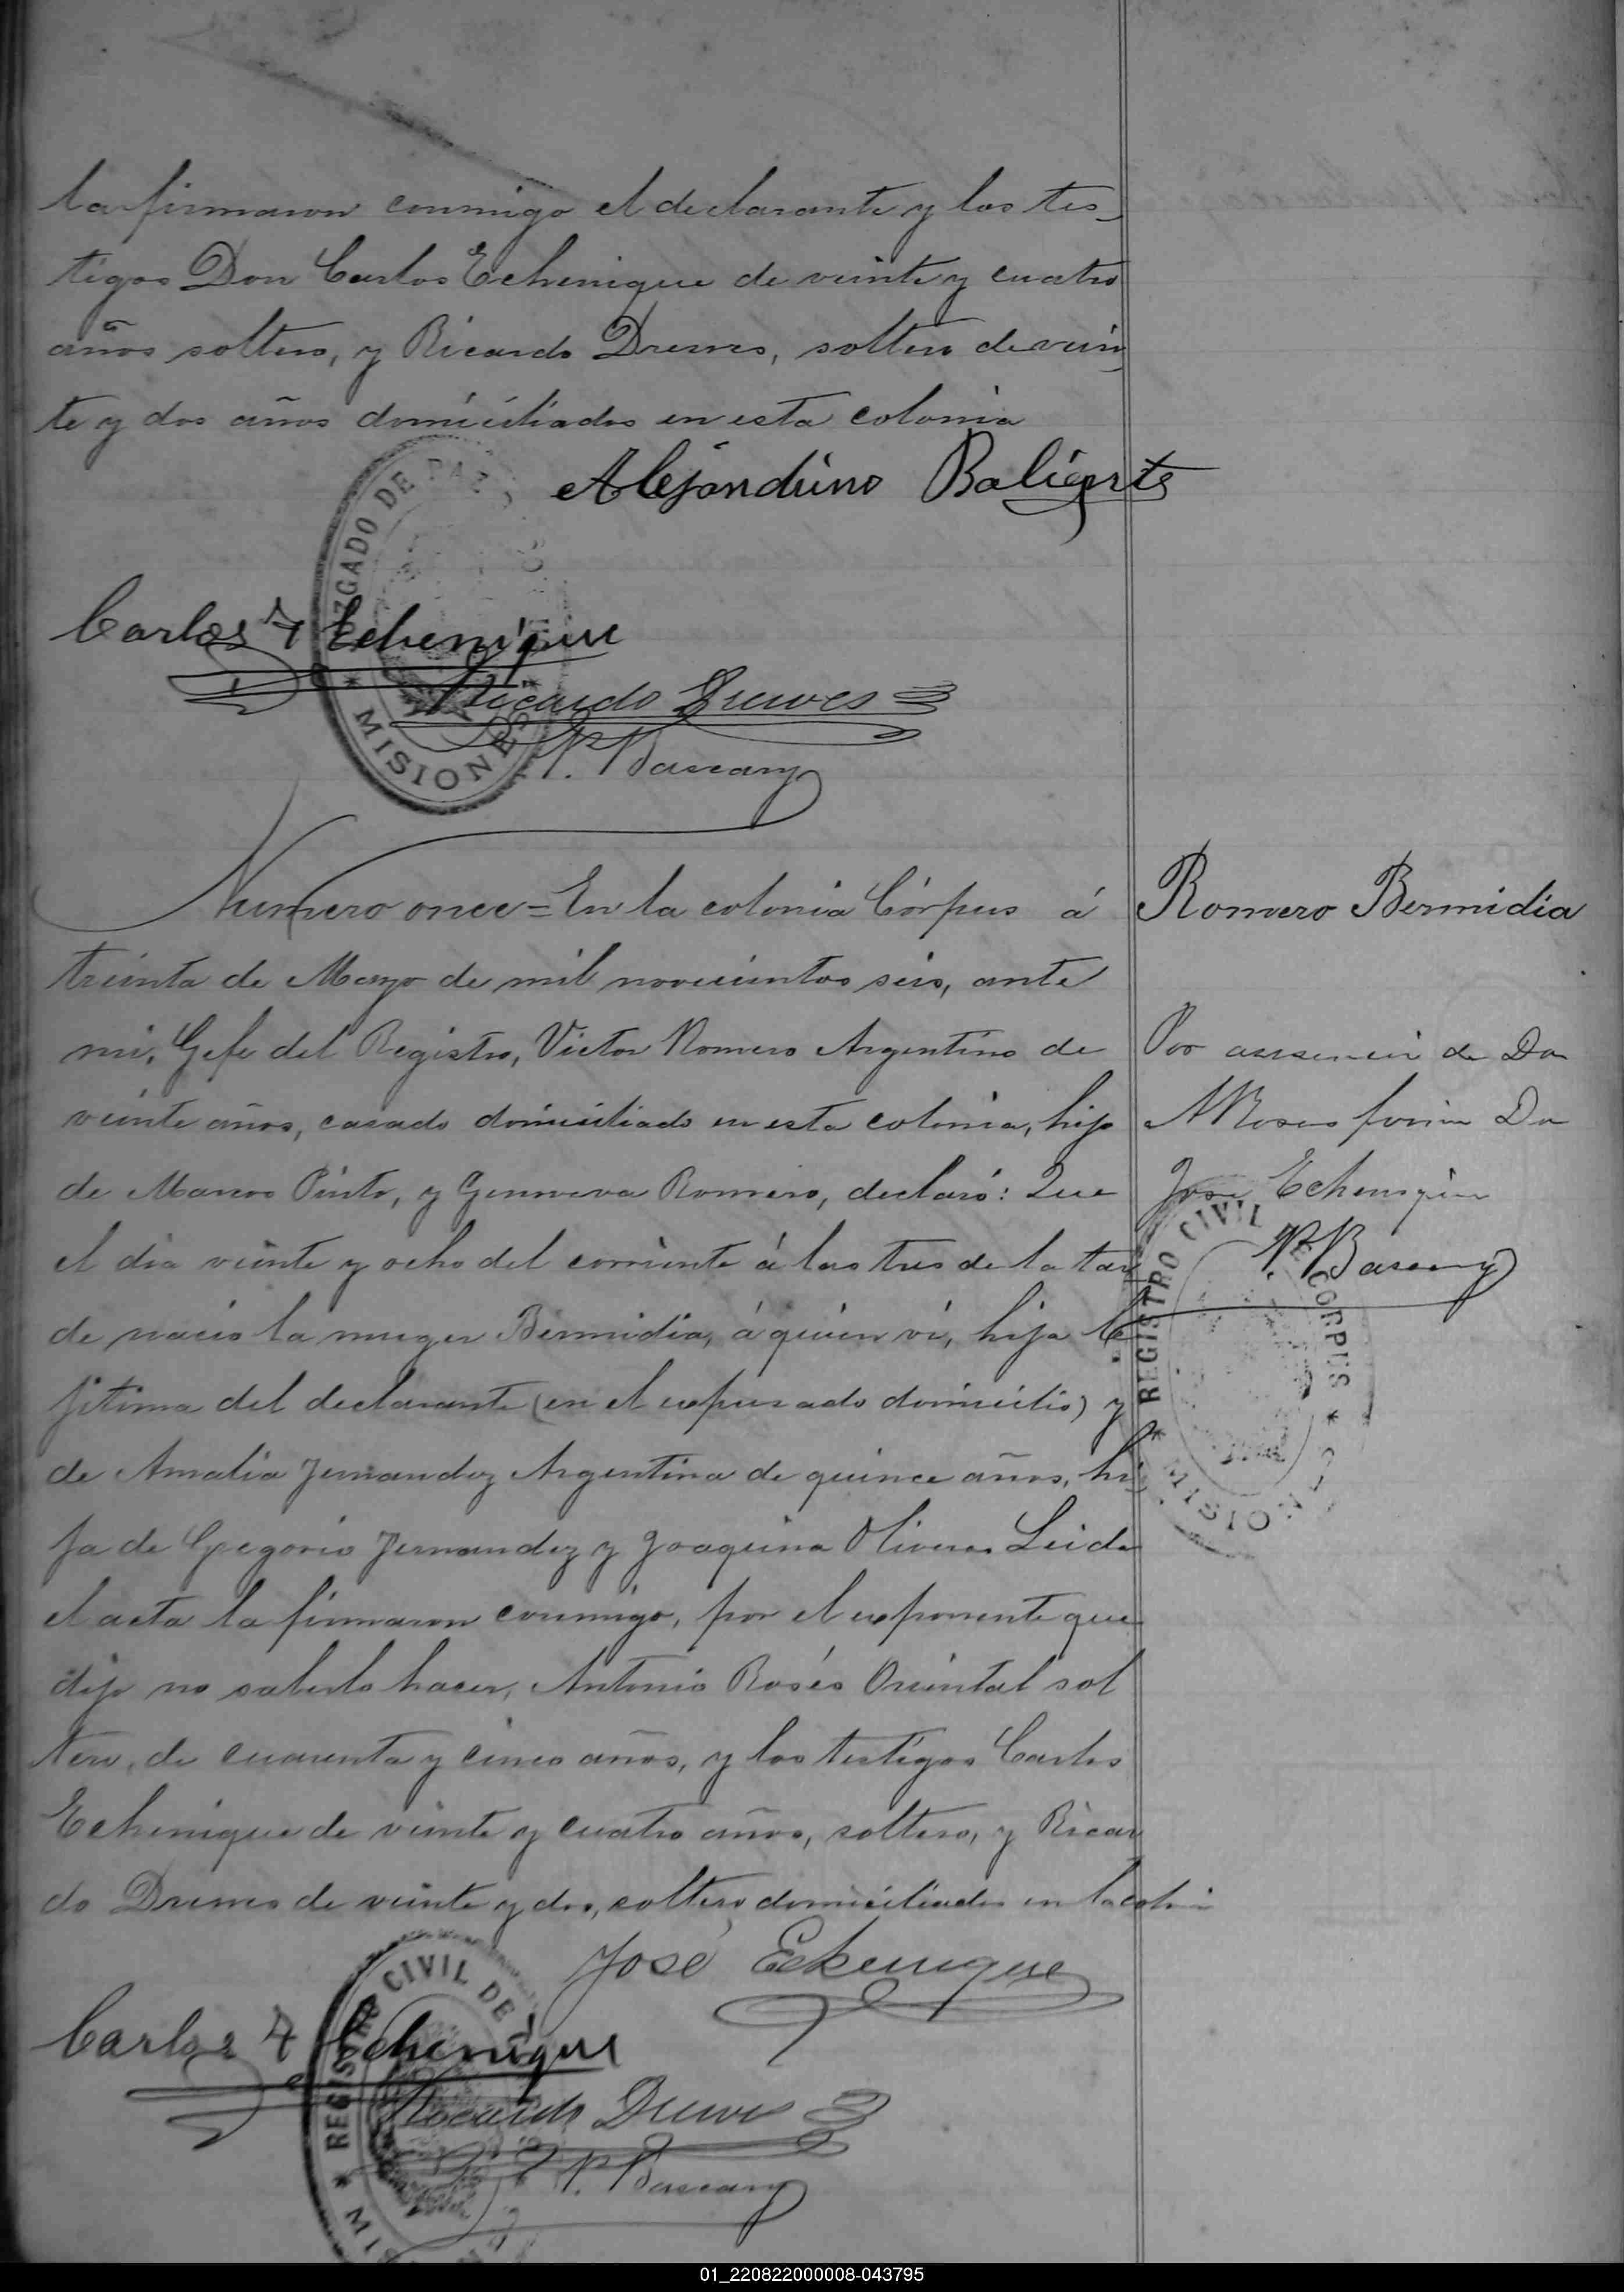 la firmaron conmigo el declarante y los tes-
tigos Don Carlos Echenique de veinte y cuatro
años soltero, y Ricardo Drewes, soltero de vein
te y dos años domiciliados en esta colonia
Alejandrino Baligarte
JUZGADO DE PAZ
* MISIONES *
Carlos F Echenique
Ricardo Drewes
P. Bascary
Numero once = En la colonia Córpus á
treinta de Mayo de mil novecientos seis, ante
mi, Gefe del Registro, Victor Romero Argentino de
veinte años, casado domiciliado en esta colonia, hijo
de Marcos Pinto, y Genoveva Romero, declaró: Que
el dia veinte y ocho del corriente á las tres de la tar
de nacio la muger Bermidia, á quien vi, hija le
jitima del declarante (en el expresado domicilio) y
de Amalia Fernandez Argentina de quince años, hi
ja de Gregorio Fernandez y Joaquina Olivera Leida
el acta la firmaron conmigo, por el exponente que
dijo no saberlo hacer, Antonio Rosés Oriental sol
tero, de cuarenta y cinco años, y los testigos Carlos
Echenique de veinte y cuatro años, soltero, y Ricar
do Drewes de veinte y dos, soltero domiciliados en la colonia
José Echenique
Carlos F Echenique
Ricardo Drewes
P. Bascary
REGISTRO CIVIL DE
Romero Bermidia
Por ausencia de Don
A Roses firma Don
Jose Echenique
P. Bascary
* REGISTRO CIVIL DE CORPUS *
MISIONES
01_220822000008-043795